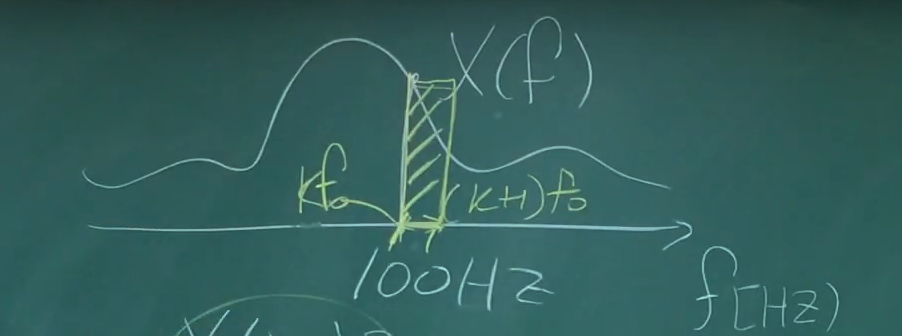 X(f)
kf₀ (k+1)f₀
100HZ
f[HZ)